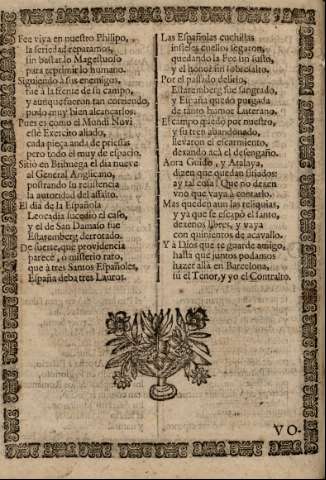 Fee viva en nuestro Philipo,
la seriedad reparamos,
sin bastar lo Magestuoso
para reprimir lo humano.
Siguiendo à sus enemigos,
fue à la frente de su campo,
y aunque fueran tan corriendo,
pudo muy bien alcançarlos.
Pues es como el Mondi Novi
este Exercito aliado,
cada pieça anda de priessa
pero todo el muy de espacio.
Sitiò en Brihuega el dia nueve
al General Anglicano,
postrando su resistencia
la autoridad del assalto.
El dia de la Española
Leocadia sucediò el caso,
y el de San Damaso fue
Estaremberg derrotado.
De suerte, que providencia
parece, ò misterio raro,
que à tres Santos Españoles,
España deba tres Lauros.
Las Españolas cuchillas
infieles cuellos segaron,
quedando la Fee sin susto,
y el honor sin sobresalto.
Por el passado delito,
Estaremberg fue sangrado,
y España quedò purgada
de tanto humor Luterano.
El campo quedò por nuestro,
y su tren abandonado,
llevaron el escarmiento,
dexando acà el desengaño.
Aora Guido, y Atalaya,
dizen que quedan sitiados:
ay tal cosa! Que no dexen
vno que vaya à contarlo.
Mas quedan aun las reliquias,
y ya que se escapò el santo,
dexenos libres, y vaya
con quinientos de acavallo.
Y à Dios que te guarde amigo,
hasta que juntos podamos
hazer allà en Barcelona,
tu el Tenor, y yo el Contralto.
VO-